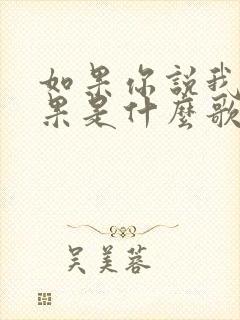 如果你說我
果是什麼歌
吴美蓉